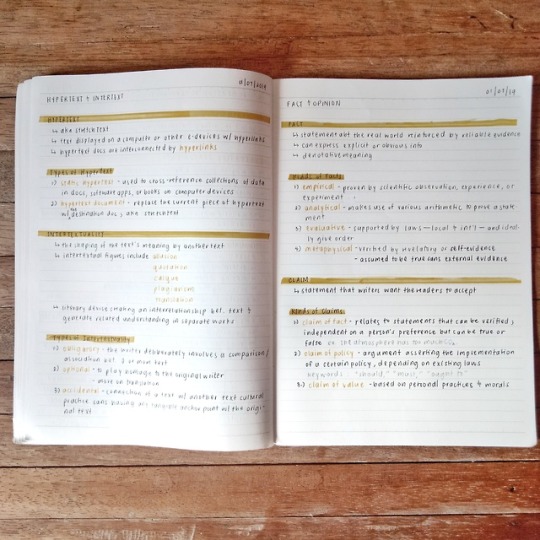 HYPERTEXT & INTERTEXT
HYPERTEXT
↳ aka stretchtext
↳ text displayed on a computer or other e-devices w/ hyperlinks
↳ hypertext docs are interconnected by hyperlinks
Types of Hypertext
1) - used to cross-reference collections of data
in docs, software apps, or books on computer devices
2) hypertext document - replace the current piece of hypertext
w/ the destination doc; aka stretchtext
INTERTEXTUALITY
↳ the shaping of one text's meaning by another text
↳ intertextual figures include allusion
quotation
calque
plagiarism
translation
↳ literary devise creating an interrelationship bet. texts &
generate related understanding in separate works
Types of Intertextuality
1) obligatory - the writer deliberately involves a comparison/
association bet. 2 or more text
2) optional - to play homage to the original writer
- more on
3) accidental - connection of a text w/ another text cultural
practice w/o anchor point w/ the origi-
nal text
FACT & OPINION
01/03/19
FACT
↳ statement abt the real world reinforced by reliable evidence
↳ can express explicit or obvious info
↳ denotative meaning
Kinds of Facts
1) empirical - proven by scientific observation, experience, or
experiment
2) analytical - makes use of various arithmetic to prove a state
ment
3) evaluative - supported by laws — local & int'l — and
give order
4) metaphysical - verified by revelatory or self-evidence
- assumed to be true w/o external evidence
CLAIM
↳ statement that writers want the readers to accept
Kinds of Claims
1) claim of fact - relates to statements that can be verified;
independent on a person's preference but can be true or
false ex. the atmosphere has no
2) claim of policy - argument asserting the implementation
of a certain policy, depending on existing laws
keywords: "should," "must," "ought to"
3) claim of value - based on personal practices & morals